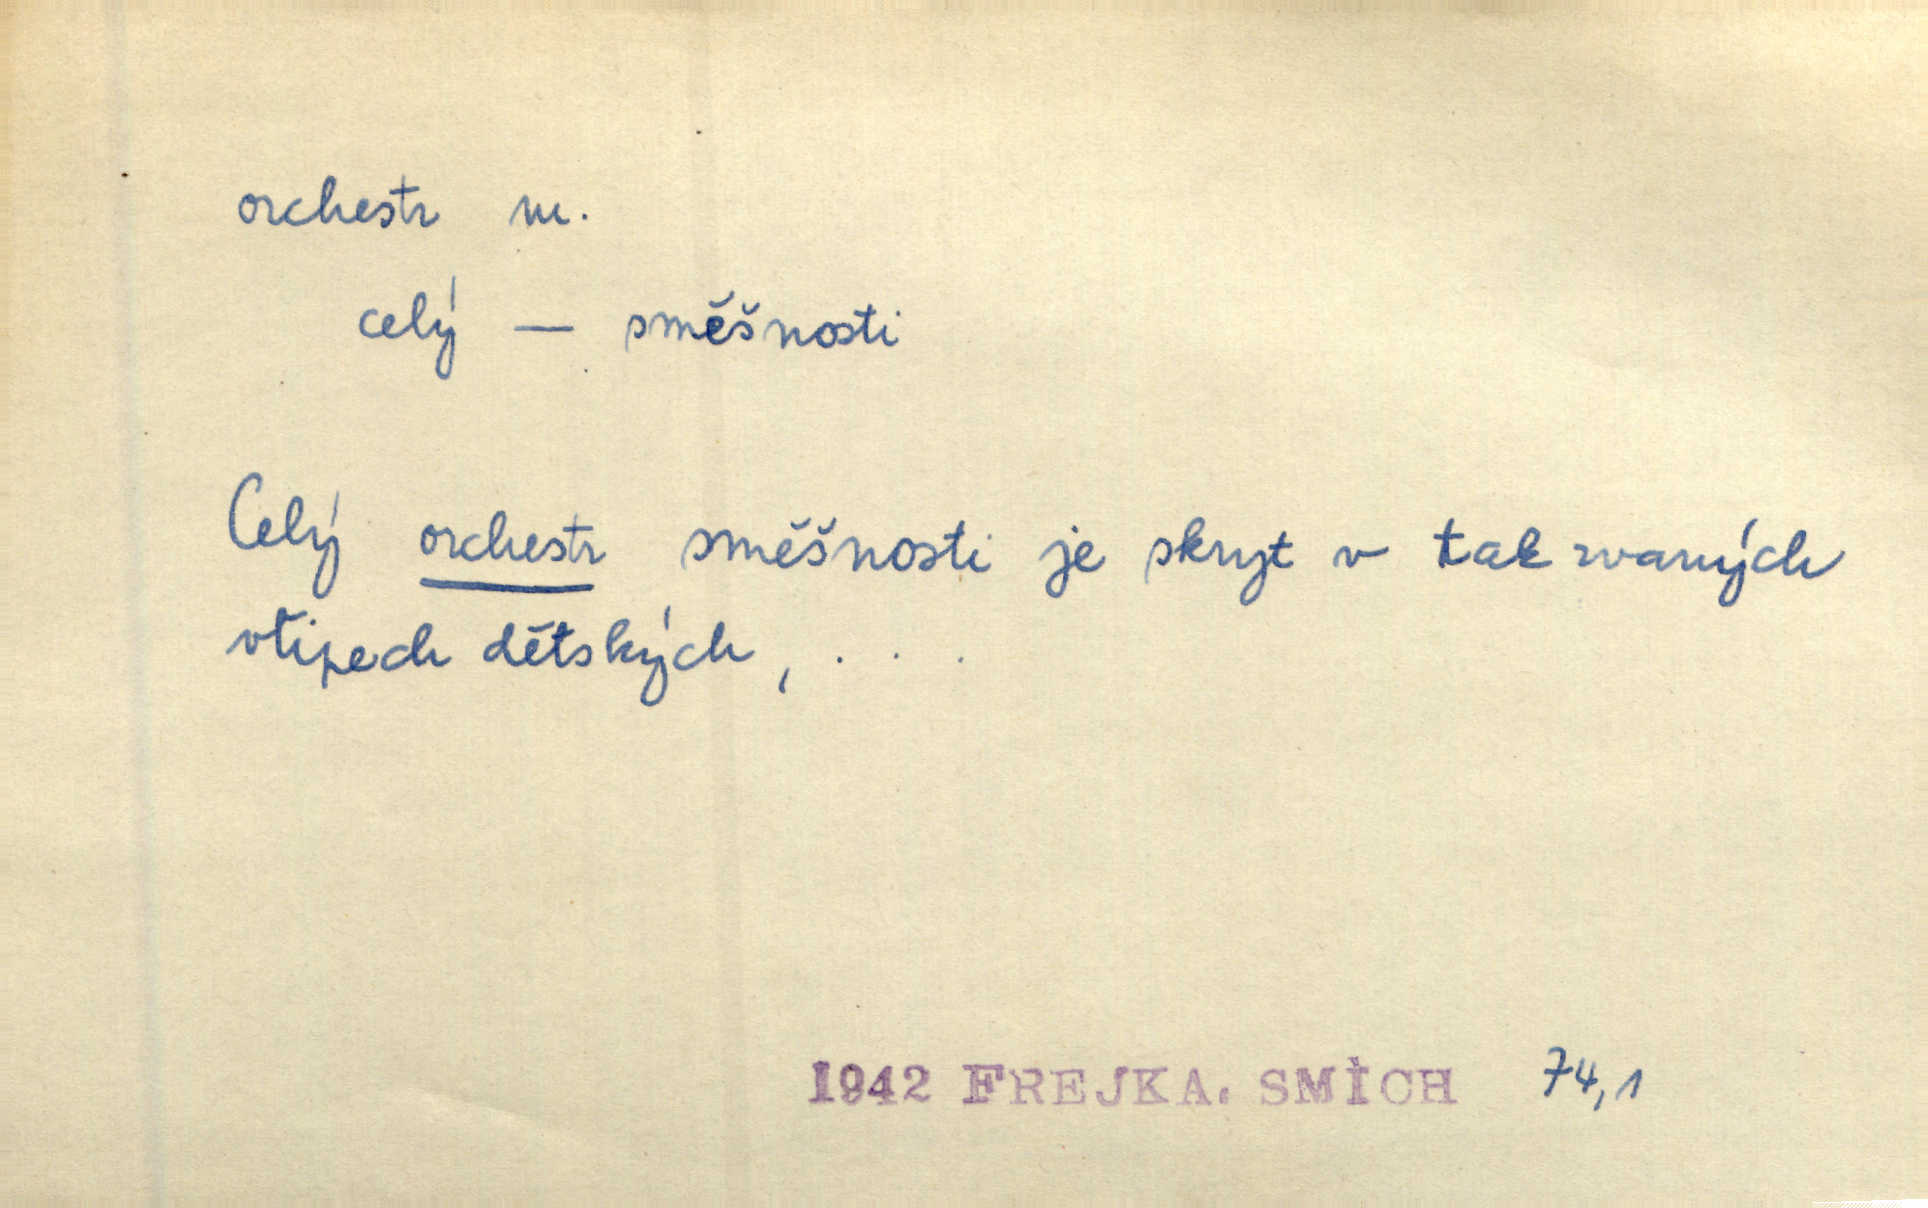 orchestr m.
celý — směšnosti
Celý orchestr směšnosti je skryt v tak zvaných
vtipech dětských, . . .
1942 FREJKA. SMÍCH 74,1